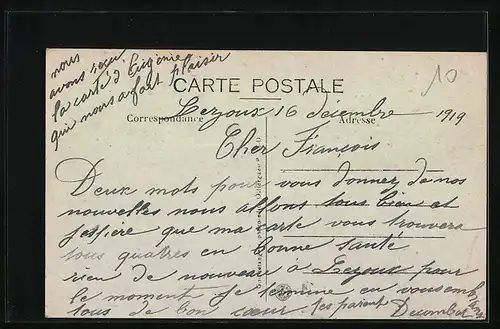 nous
avons reçu
la carte d'Eugénie
qui nous a fait plaisir
CARTE POSTALE
Lezoux 16 décembre 1919
Correspondance
Adresse
Cher François
Deux mots pour vous donnez de nos
nouvelles nous allons tous bien et
j'espère que ma carte vous trouvera
tous quatres en bonne santé
rien de nouveaux à Lezoux pour
le moment je termine en vous
tous de bon cœur tes parent
10